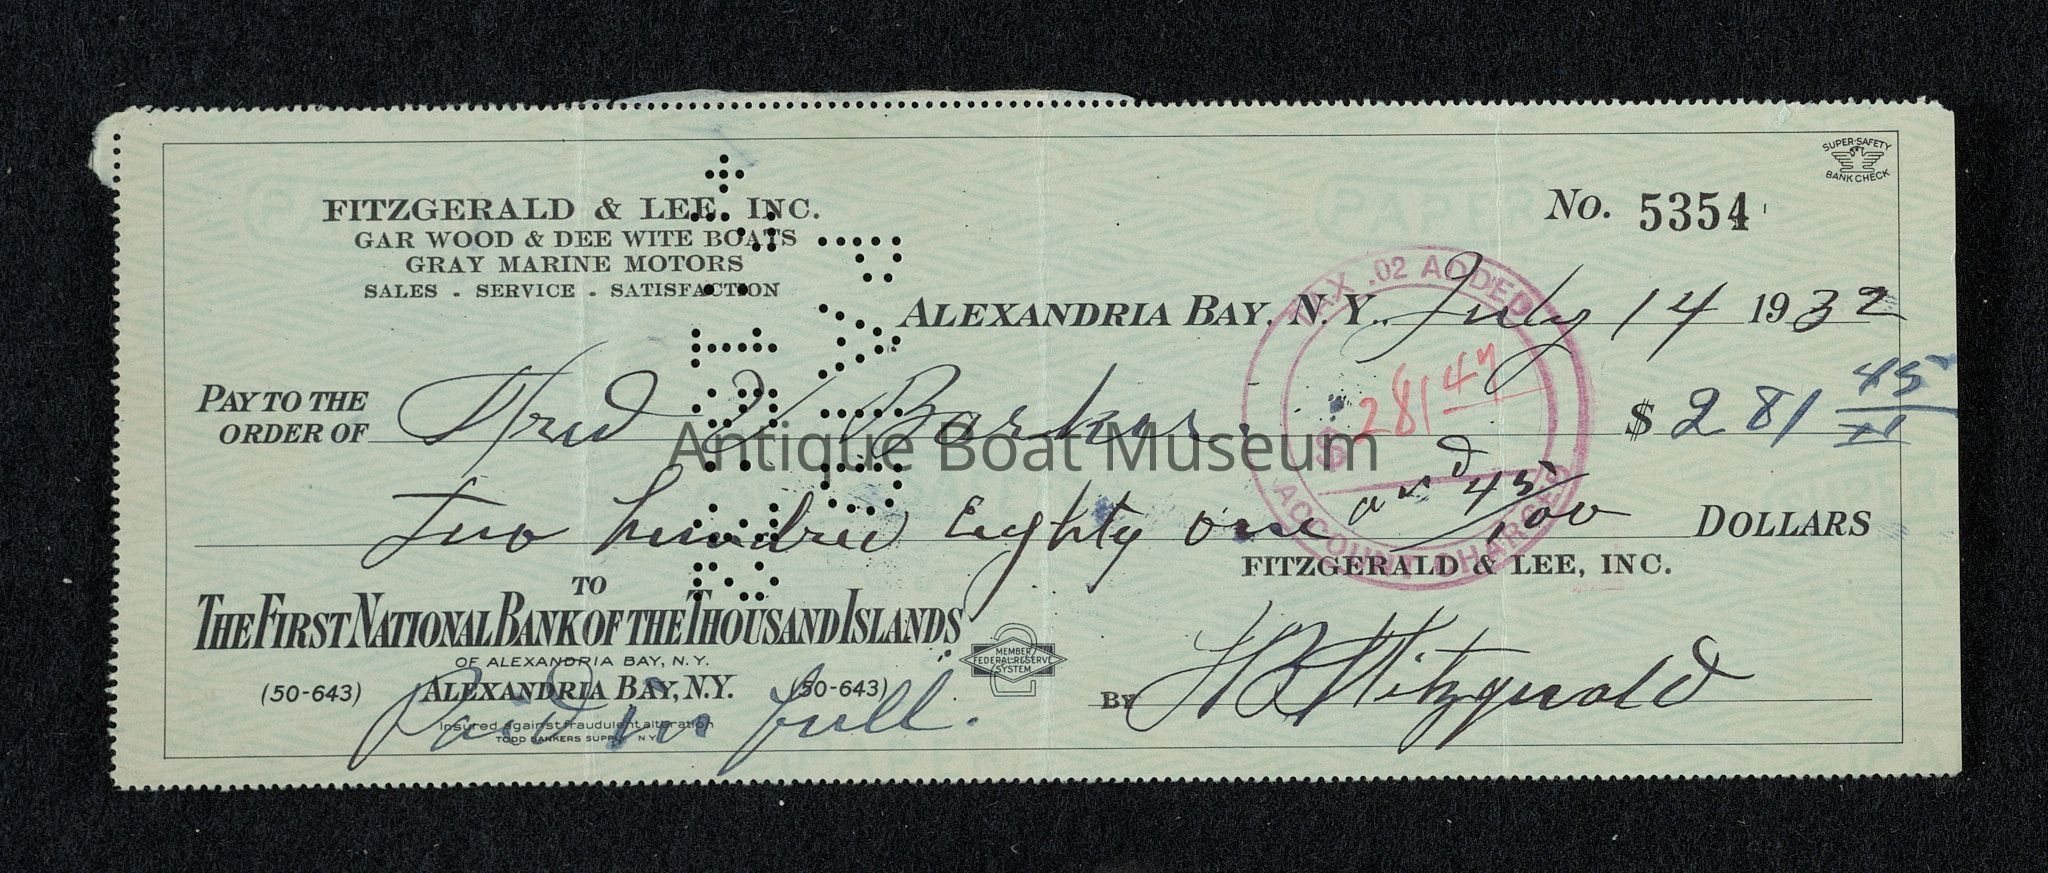 SUPER-SAFETY
BANK CHECK
FITZGERALD & LEE, INC.
GAR WOOD & DEE WITE BOATS
GRAY MARINE MOTORS
SALES - SERVICE - SATISFACTION
No. 5354
ALEXANDRIA BAY, N.Y. July 14 1932
TAX .02 ADDED
$ 281 47
ACCOUNT CHARGED
PAY TO THE
ORDER OF Fred V Barker. $ 281 45
Antique Boat Museum
Two hundred Eighty one and 45/100 DOLLARS
FITZGERALD & LEE, INC.
TO
THE FIRST NATIONAL BANK OF THE THOUSAND ISLANDS
OF ALEXANDRIA BAY, N.Y.
MEMBER
FEDERAL RESERVE
SYSTEM
(50-643) ALEXANDRIA BAY, N.Y. (50-643)
BY H B Fitzgerald
Paid in full.
Insured against fraudulent alteration
TODD BANKERS SUPPLY N Y